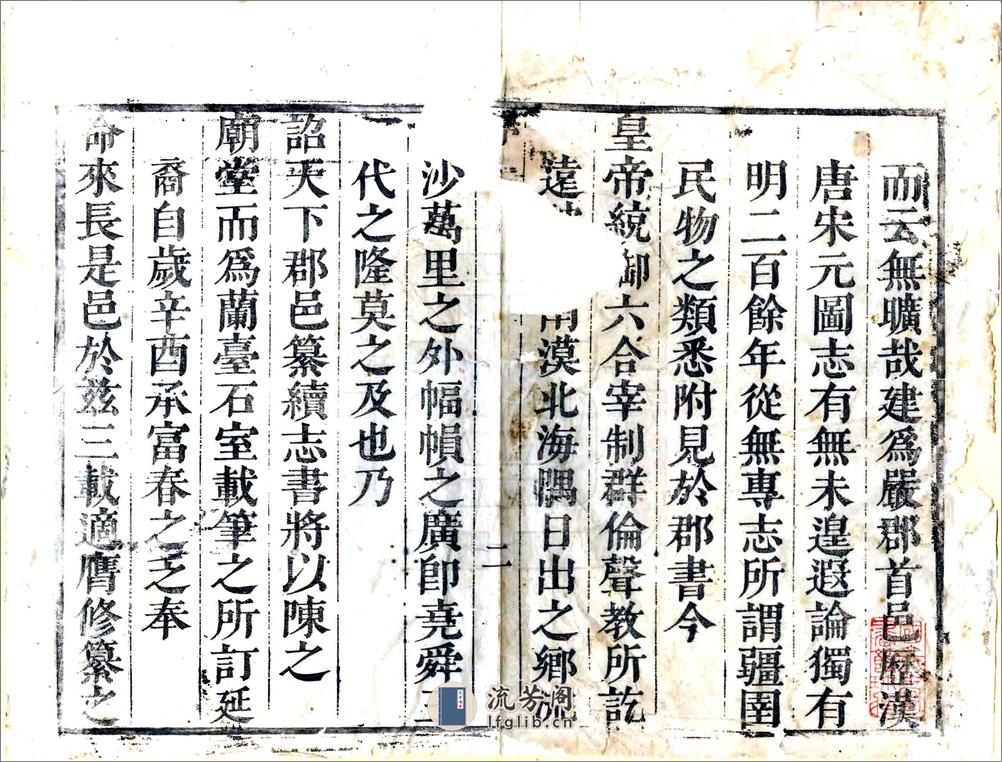 而云無曠哉建爲嚴郡首邑歷漢
唐宋元圖志有無未遑遐論獨有
明二百餘年從無專志所謂疆圉
民物之類悉附見於郡書今
皇帝統御六合宰制群倫聲教所訖
遠 南漠北海隅日出之鄉流
二
沙萬里之外幅幀之廣卽堯舜三
代之隆莫之及也乃
詔天下郡邑纂續志書將以陳之
廟堂而爲蘭臺石室載筆之所訂延
裔自歲辛酉承富春之乏奉
命來長是邑於玆三載適膺修纂之
流芳阁
lfglib.cn